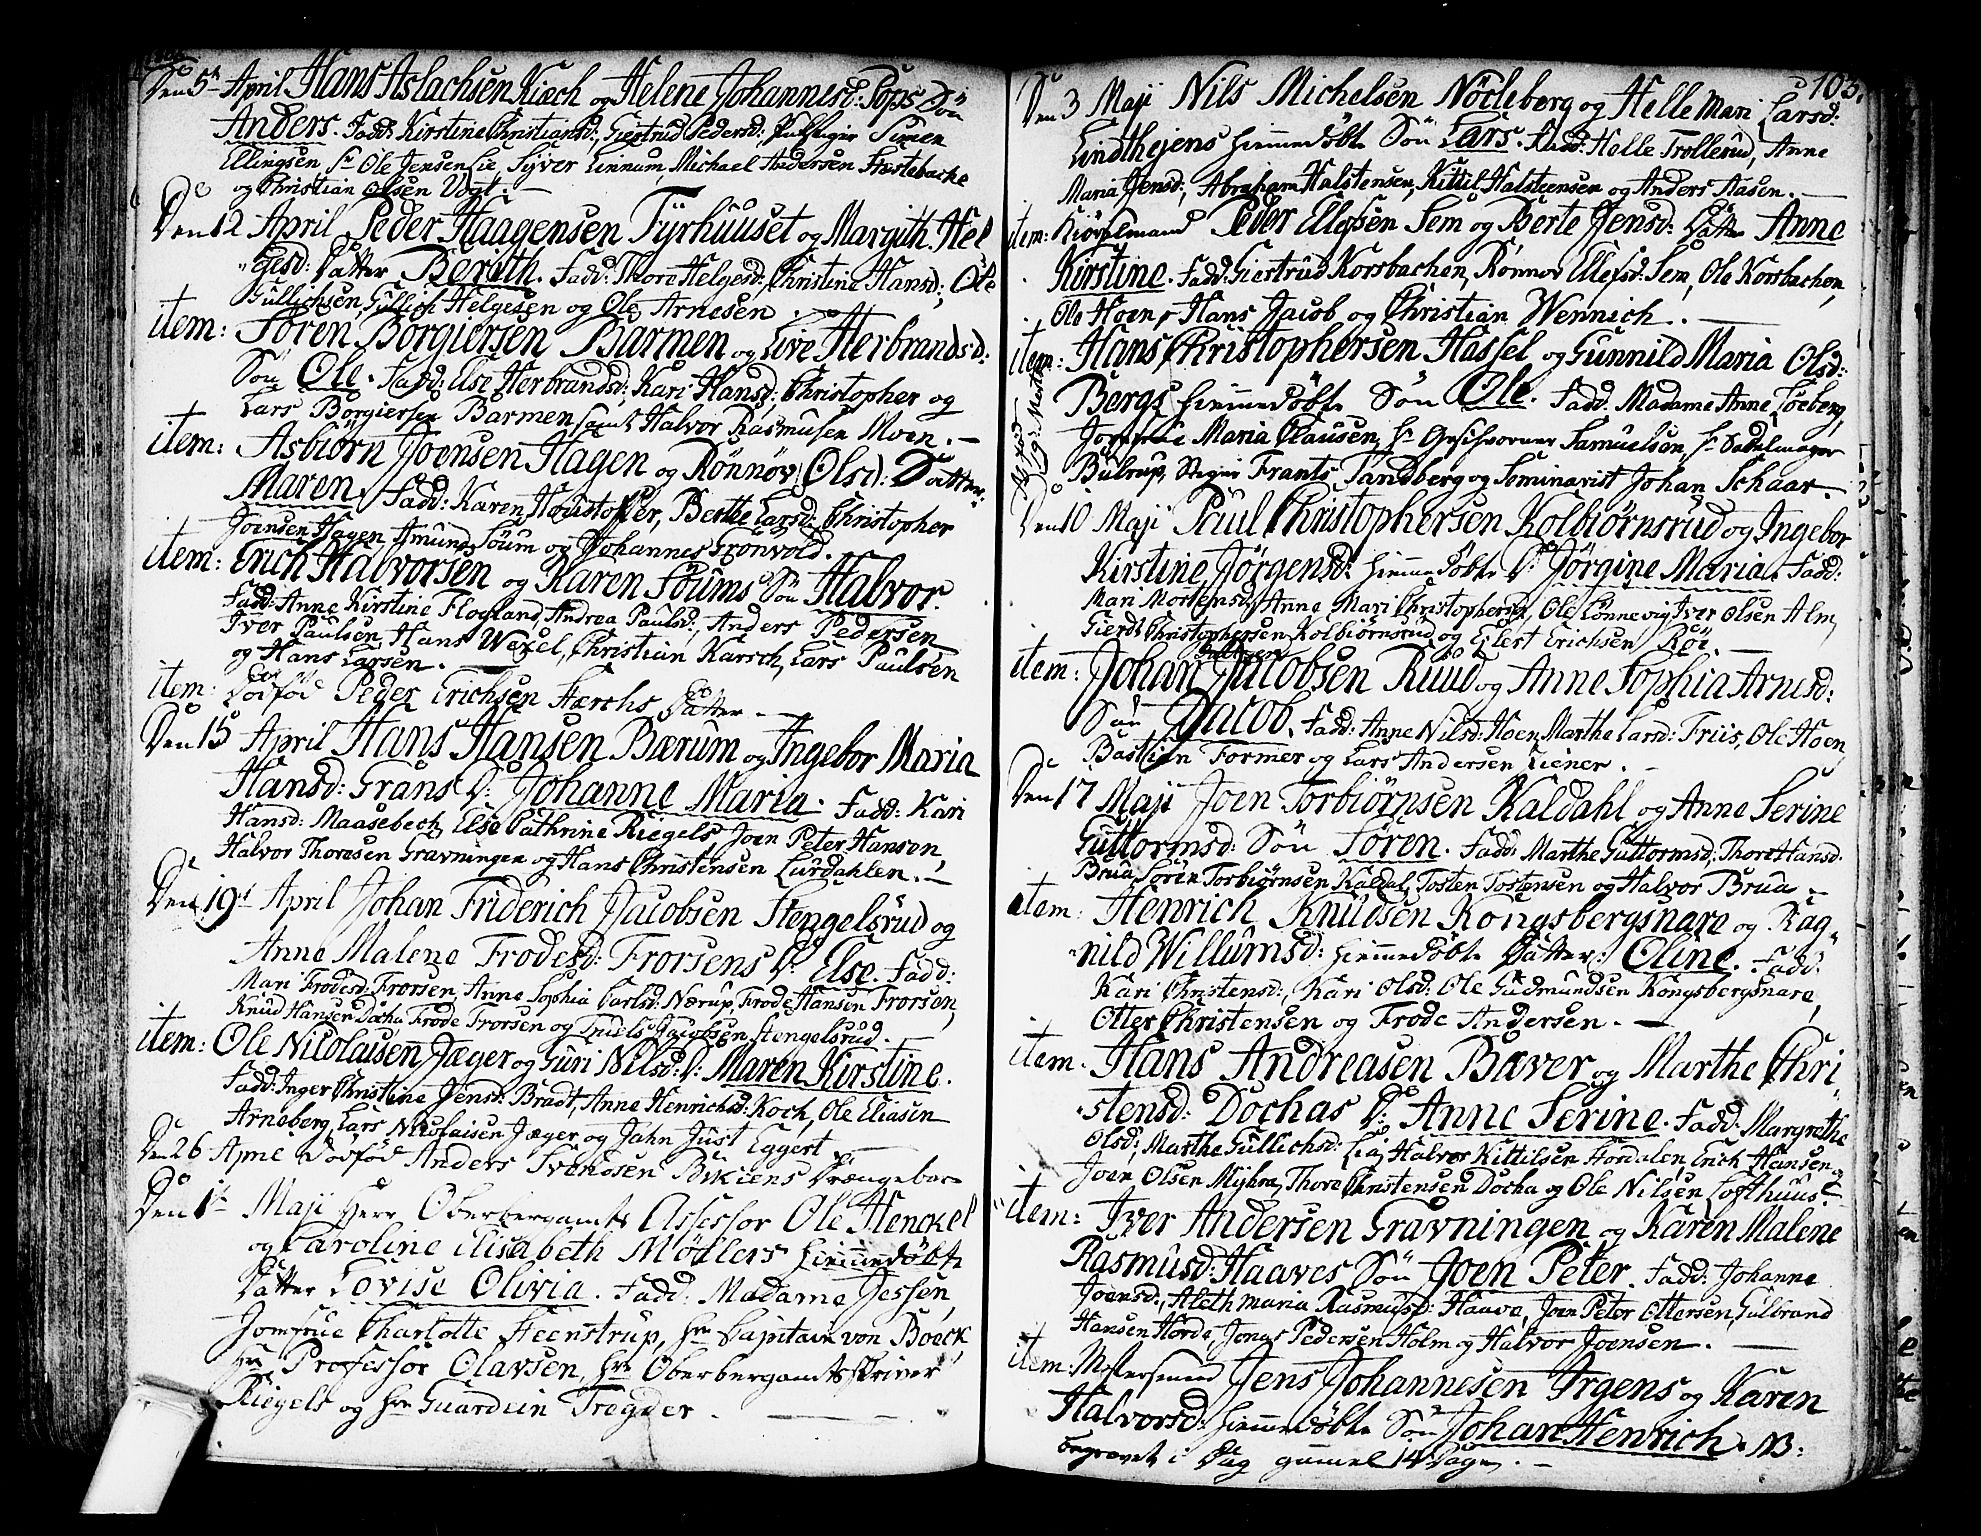 Den 5te April Hans Aslachsen Kiæch og Helene Johannesd: Pops Sön
Anders. Fadd: Kirstine Christiansd: Giertrud Pedersd: Simen
Ellingsen Hr Ole Jensen Lie Syver Linnum, Michael Andersen Hærtebache
og Christian Olsen Vogt. —
Den 12 April Peder Haagensen Tyrhuuset og Margith Hel
gesd: Datter Berith. Fadd: Thore Helgesd: Christine Hansd: Ole
Gullichsen, Gullich Helgesen og Ole Arnesen. —
item: Sören Börgiersen Barmen og Live Herbrandsd:
Sön Ole. Fadd: Else Herbrandsd: Kari Hansd: Christopher og
Lars Börgiersen Barmen samt Halvor Rasmusen Moen. —
item: Asbiörn Joensen Hagen og Rönnöv Olsd: Datter
Maren. Fadd: Karen Berthe Larsd: Christopher
Joensen Hagen Amund Söum og Johannes Grönvold.
item: Erich Halvorsen og Karen Söums Sön Halvor.
Fadd: Anne Kirstine Flogland, Andrea Paulsd:, Anders Pedersen
Iver Paulsen, Hans Wexel, Christian Karsch, Lars Paulsen
og Hans Larsen. —
item: Dödföd Peder Erichsen Hærchs Datter. —
Den 15 April Hans Hansen Bærum og Ingebor Maria
Hansd: Grans D: Johanne Maria. Fadd: Kari
Hansd: Maasebech, Else Cathrine Riegels Joen Peter Hansen,
Halvor Thoresen Gravningen og Hans Christensen Lurdahlen. —
Den 19de April Johan Friderich Jacobsen Stengelsrud og
Anne Malene Frodesd: Frorsens D: Else. Fadd:
Mari Frodesd: Frorsen, Anne Sophia Carlsd: Nærup, Frode Hansen Frorsen,
Knud Hansen Docha, Frode Frorsen og Truels Jacobsen Stengelsrud.
item: Ole Nicolaisen Jæger og Guri Nilsd: D: Maren Kirstine.
Fadd: Inger Christine Jensd: Bradt, Anne Henrichsd: Koch, Ole Eliasen
Arneberg, Lars Nicolaisen Jæger og Jahn Just Eggert. —
Den 26 April Dödföd Anders Svendsen Drengebarn
Den 1te Maji Herr Oberbergamts Assessor Ole Henckel
og Caroline Elisabeth Mödlers hiemmedöbte
Datter Lovise Olivia. Fadd: Madame Jessen,
Jomfrue Charlotte Heenstrup, Hr Capitain von Boeck,
Hr Professor Olavsen, Hr Oberbergamtsskriver
Riegels og Hr Guardein Trögder. —
103.
Den 3 Maji Nils Michelsen Nöcleberg og Helle Mari Larsd:
Lindthejens hiemmedöbte Sön Lars. Fadd: Helle Trollerud, Anne
Maria Jensd:, Abraham Halstensen, Kittil Halsteensen og Anders Aasen. —
item: Kiöbmand Peder Ellefsen Sem og Berte Jensd: Datter Anne
Kirstine. Fadd: Giertrud Korsbachen, Rönnov Ellefsd: Sem, Ole Korsbachen,
Ole Hoen, Hans Jacob og Christian Wennich. —
item: Hans Christophersen Hassel og Gunnild Maria Olsd:
Bergs hiemmedöbte Sön Ole. Fadd: Madame Anne Löeberg,
Jomfrue Maria Clausen, Hr Geschworner Samuelsen, Hr Sadelmager
Bülrup, Stiger Frants Tandberg og Seminarist Johan Schaar. —
Den 10 Maji Paul Christophersen Kolbiörnsrud og Ingebor
Kirstine Jörgensd: hiemmedöbte D: Jörgine Maria. Fadd:
Mari Mortensd:, Anne Mari Christophersd:, Ole Lonnevig, Iver Olsen Alm,
Gierdt Christophersen Kolbiörnsrud og Eylert Erichsen Röi. —
item: Johan Jacobsen Ruud og Anne Sophia Arnesd:
Sön Jacob. Fadd: Anne Nilsd: Hoen, Marthe Larsd: Friis, Ole Hoen,
Bastian Former og Lars Andersen Liener. —
Den 17 Maji Joen Torbiörnsen Kaldahl og Anne Serine
Guttormsd: Sön Sören. Fadd: Marthe Guttormsd: Thore Hansd:
Brua, Sören Torbiörnsen Kaldal, Tosten Tostensen og Halvor Brua. —
item: Henrich Knudsen Kongsbergsnare og Rag
nild Willumsd: hiemmedöbte Datter: Oline. Fadd:
Kari Christensd:, Kari Olsd: Ole Gudmundsen Kongsbergsnare,
Otter Christensen og Frode Andersen. —
item. Hans Andreasen Baver og Marthe Chri
stensd: Dochas D: Anne Serine. Fadd: Margrethe
Olsd: Marthe Gullichsd: Lia, Halvor Kittilsen Hordalen, Erich Hansen,
Joen Olsen Myhra, Thore Christensen Docha og Ole Nilsen Lofthuus. —
item: Iver Andersen Gravningen og Karen Malene
Rasmusd: Haaves Sön Joen Peter. Fadd: Johanne
Joensd:, Aleth Maria Rasmusd: Haave, Joen Peter Ottersen, Gulbrand
Hansen Horde, Jonas Pedersen Holm og Halvor Joensen. —
item: Mestersvend Jens Johannesen Irgens og Karen
Halvorsd: hiemmedöbte Sön Johan Henrich. NB:
begravet i Dag gammel 14 Dage. —